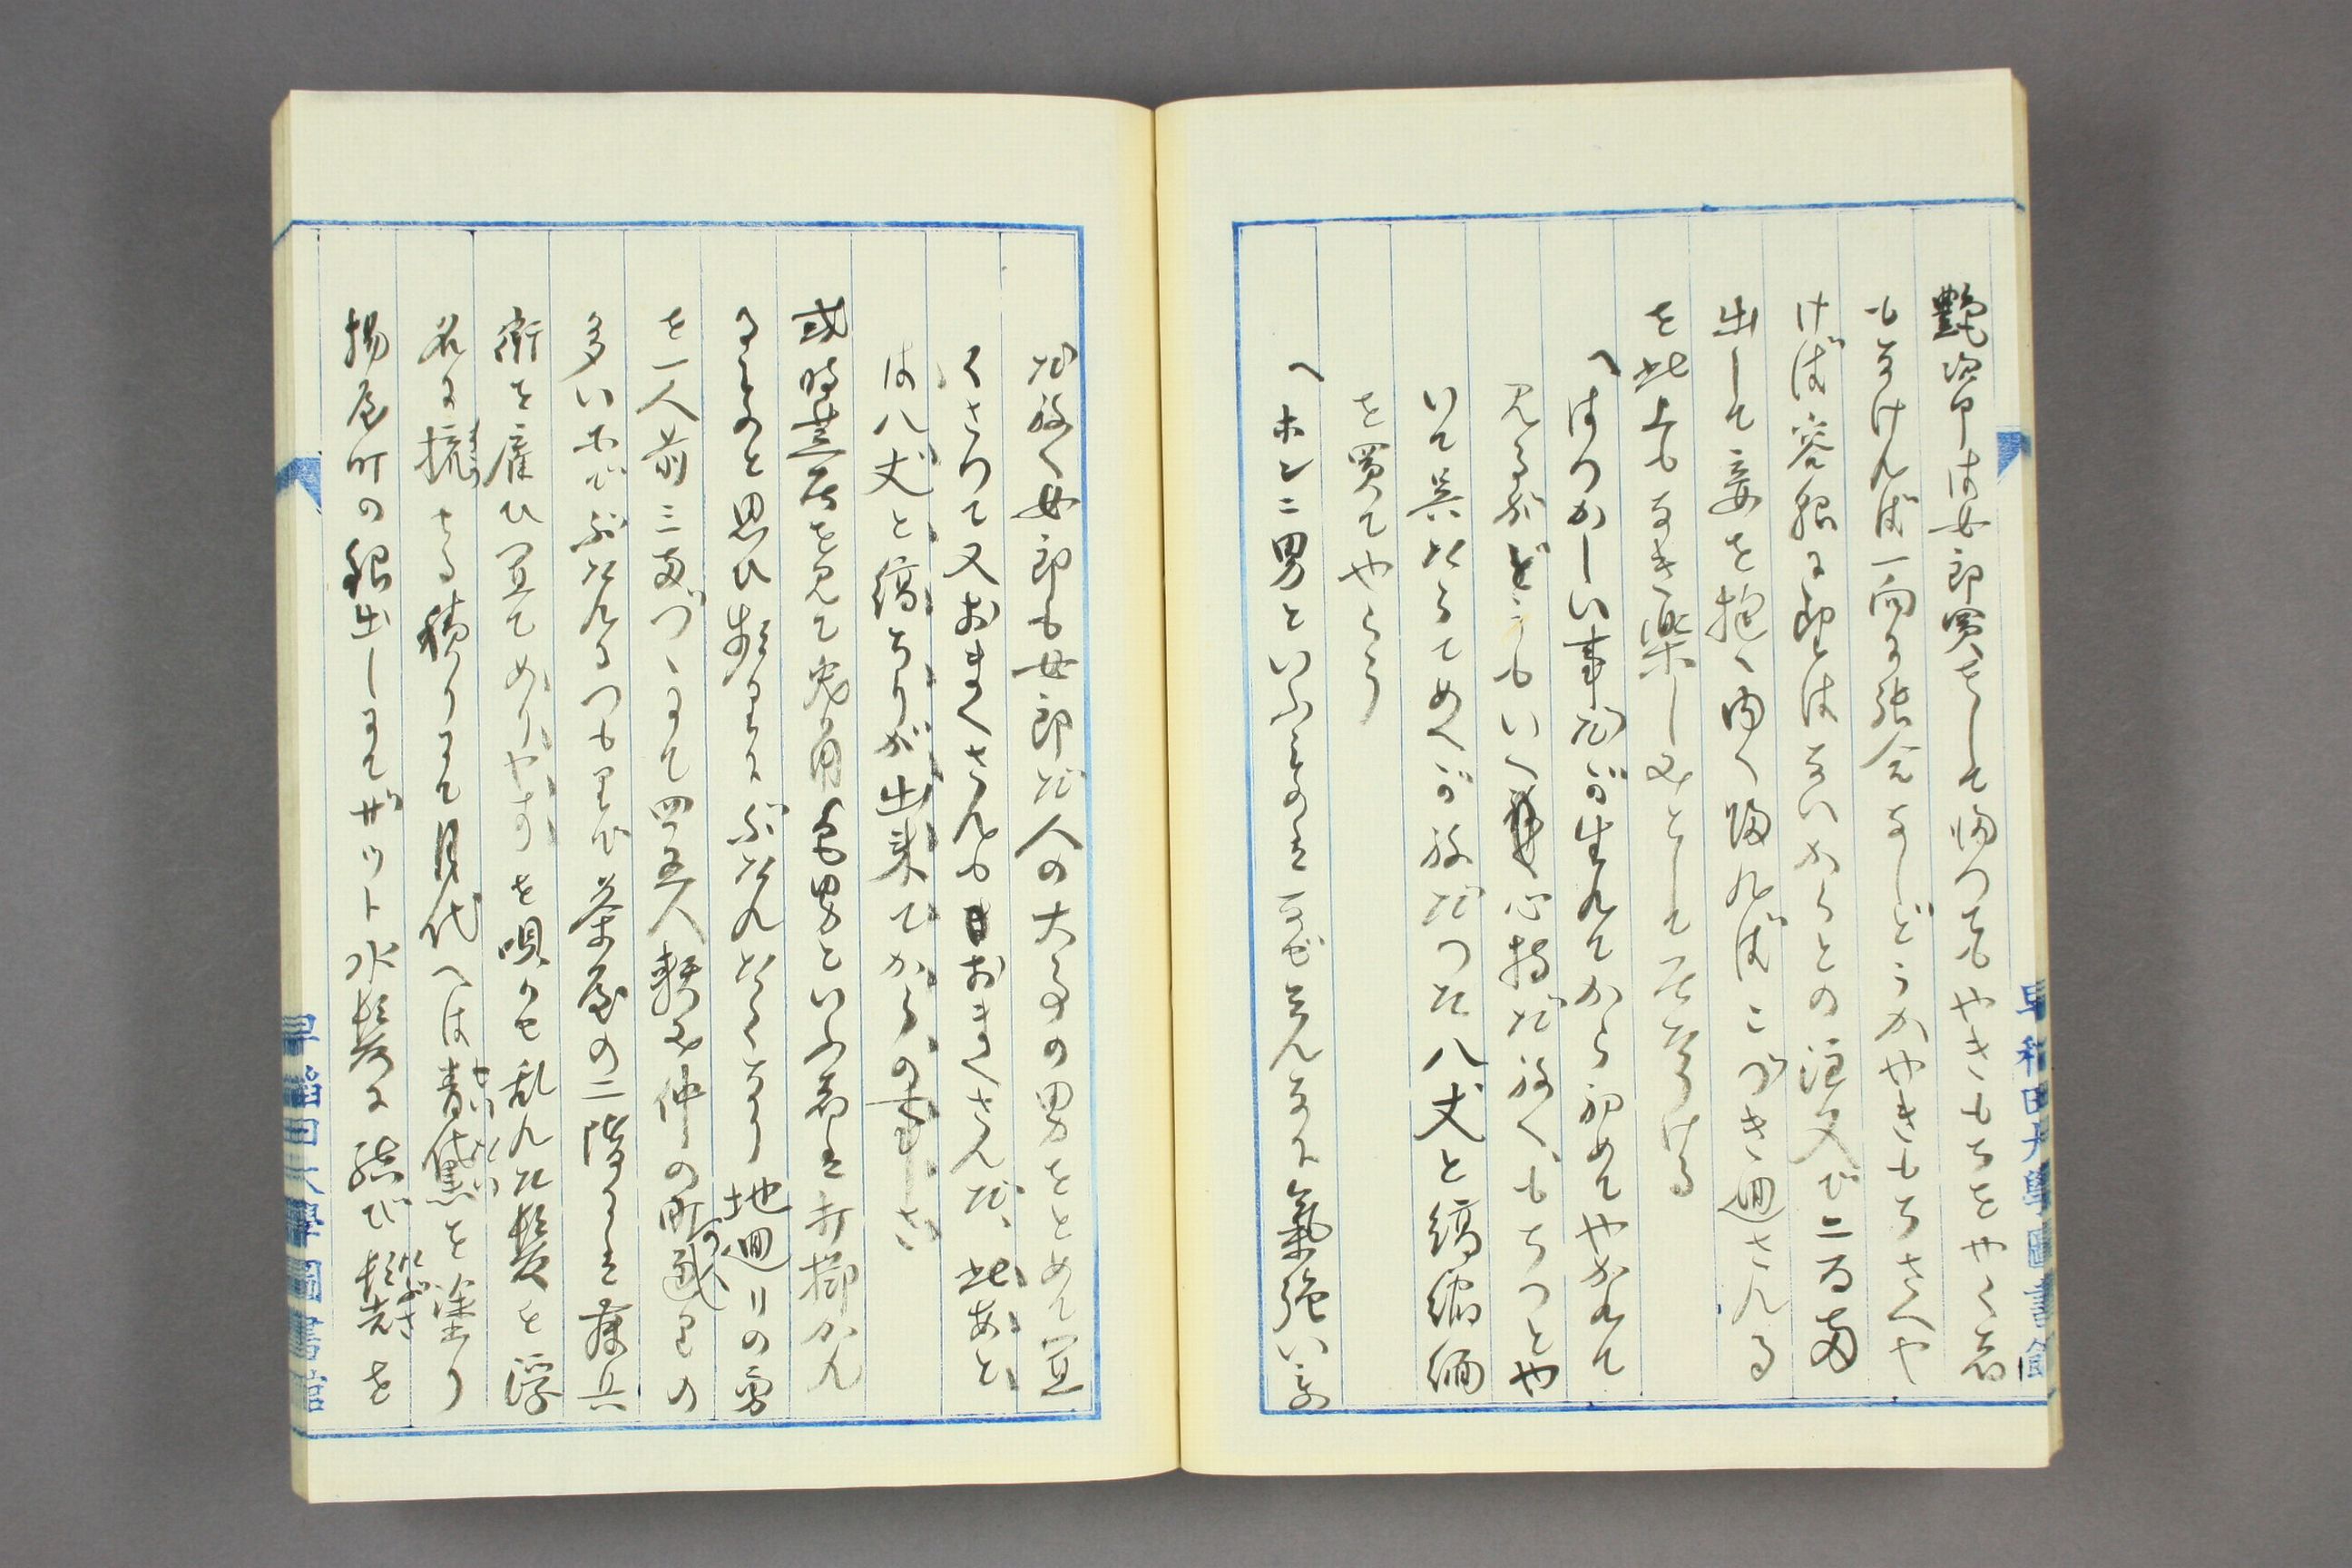 艶次郎は女郎買をして帰つてもやきもちをやく者
もなければ一向に張合なしどうかやきもちさへや
けば容貌に望はないからとの注文で二百両
出して妾を抱へ内へ帰ればこづき廻さるゝ
を此上もなき楽しみとして居たりける
〽はつかしい事だが生れてから初めてやかれて
見るがどうもいへぬ心持だ放くもちつとや
いて呉たらてめへが放だつた八丈と縞縮緬
を買てやらう
〽ホンニ男といふものはなぜそんなに気強いの
だ放く女郎も女郎だ人の大事の男をとめて置
くさつて又おまへさんもおまへさんだ、此あと
は八丈と縞ちりが出来てからの事しさ
或時芝居を見て兎角色男といふ者は打擲かれ
るものと思ひ頻りにぶたれたくなり地廻りの男
を一人前三両づゝにて四五人頼み仲の町通りの
多い所でぶたれるつもりで茶屋の二階には藤兵
衛を雇ひ置てめりやすを唄はせ乱れた髪を浮
名に撫する積りにて月代へは青黛を塗り
揚屋町の銀出しにてザット水髪に結び髻を
早稲田大學圖書館
早稲田大學圖書館